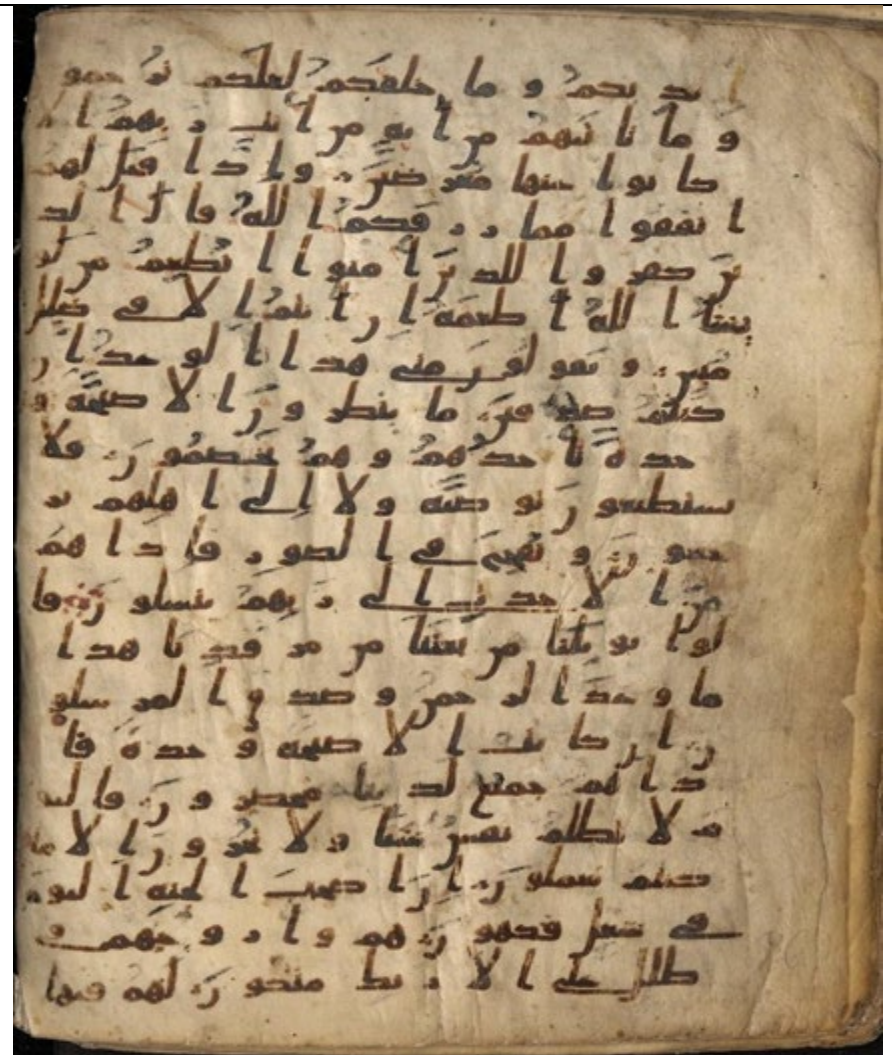 يديكم وما خلفكم لعلكم ترحمو
ن وما تاتيهم من ايه من ايت ربهم الا
كانوا عنها معرضين واذا قيل لهم
انفقوا مما رزقكم الله قال الذ
ين كفروا للذين امنوا انطعم من لو
يشا الله اطعمه ان انتم الا في ضلل
مبين ويقولون متى هذا الوعد ان
كنتم صدقين ما ينظرون الا صيحه و
حده تاخذهم وهم يخصمون فلا
يستطيعون توصيه ولا الى اهلهم ير
جعون ونفخ في الصور فاذا هم
من الاجدث الى ربهم ينسلون قا
لوا يويلنا من بعثنا من مرقدنا هذا
ما وعد الرحمن وصدق المرسلو
ن ان كانت الا صيحه وحده فا
ذا هم جميع لدينا محضرون فاليو
م لا تظلم نفس شيا ولا تجزون الا ما
كنتم تعملون ان اصحب الجنه اليوم
في شغل فكهون هم وازوجهم في
ظلل على الاريك متكون لهم فيها